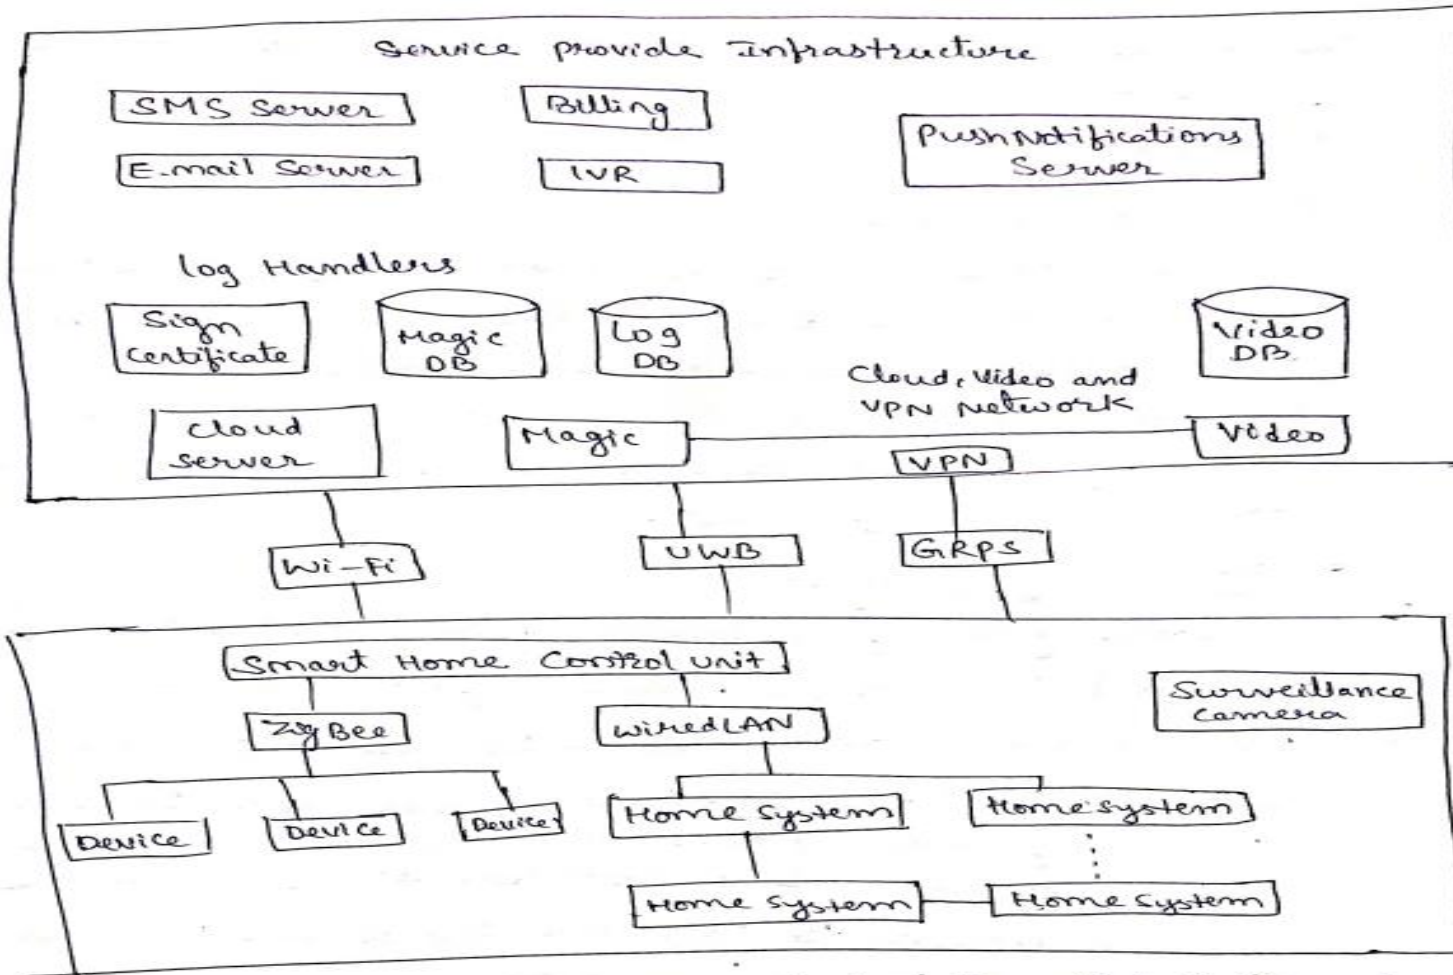 Service provide Infrastructure
SMS Server
Billing
Push Notifications
Server
E-mail Server
IVR
log Handlers
Sign
Certificate
Magic
DB
Log
DB
Video
DB
Cloud, Video and
VPN Network
Cloud
server
Magic
VPN
Video
Wi-Fi
UWB
GRPS
Smart Home Control unit
Surveillance
camera
ZigBee
wiredLAN
Device
Device
Device
Home System
Home system
Home System
Home System